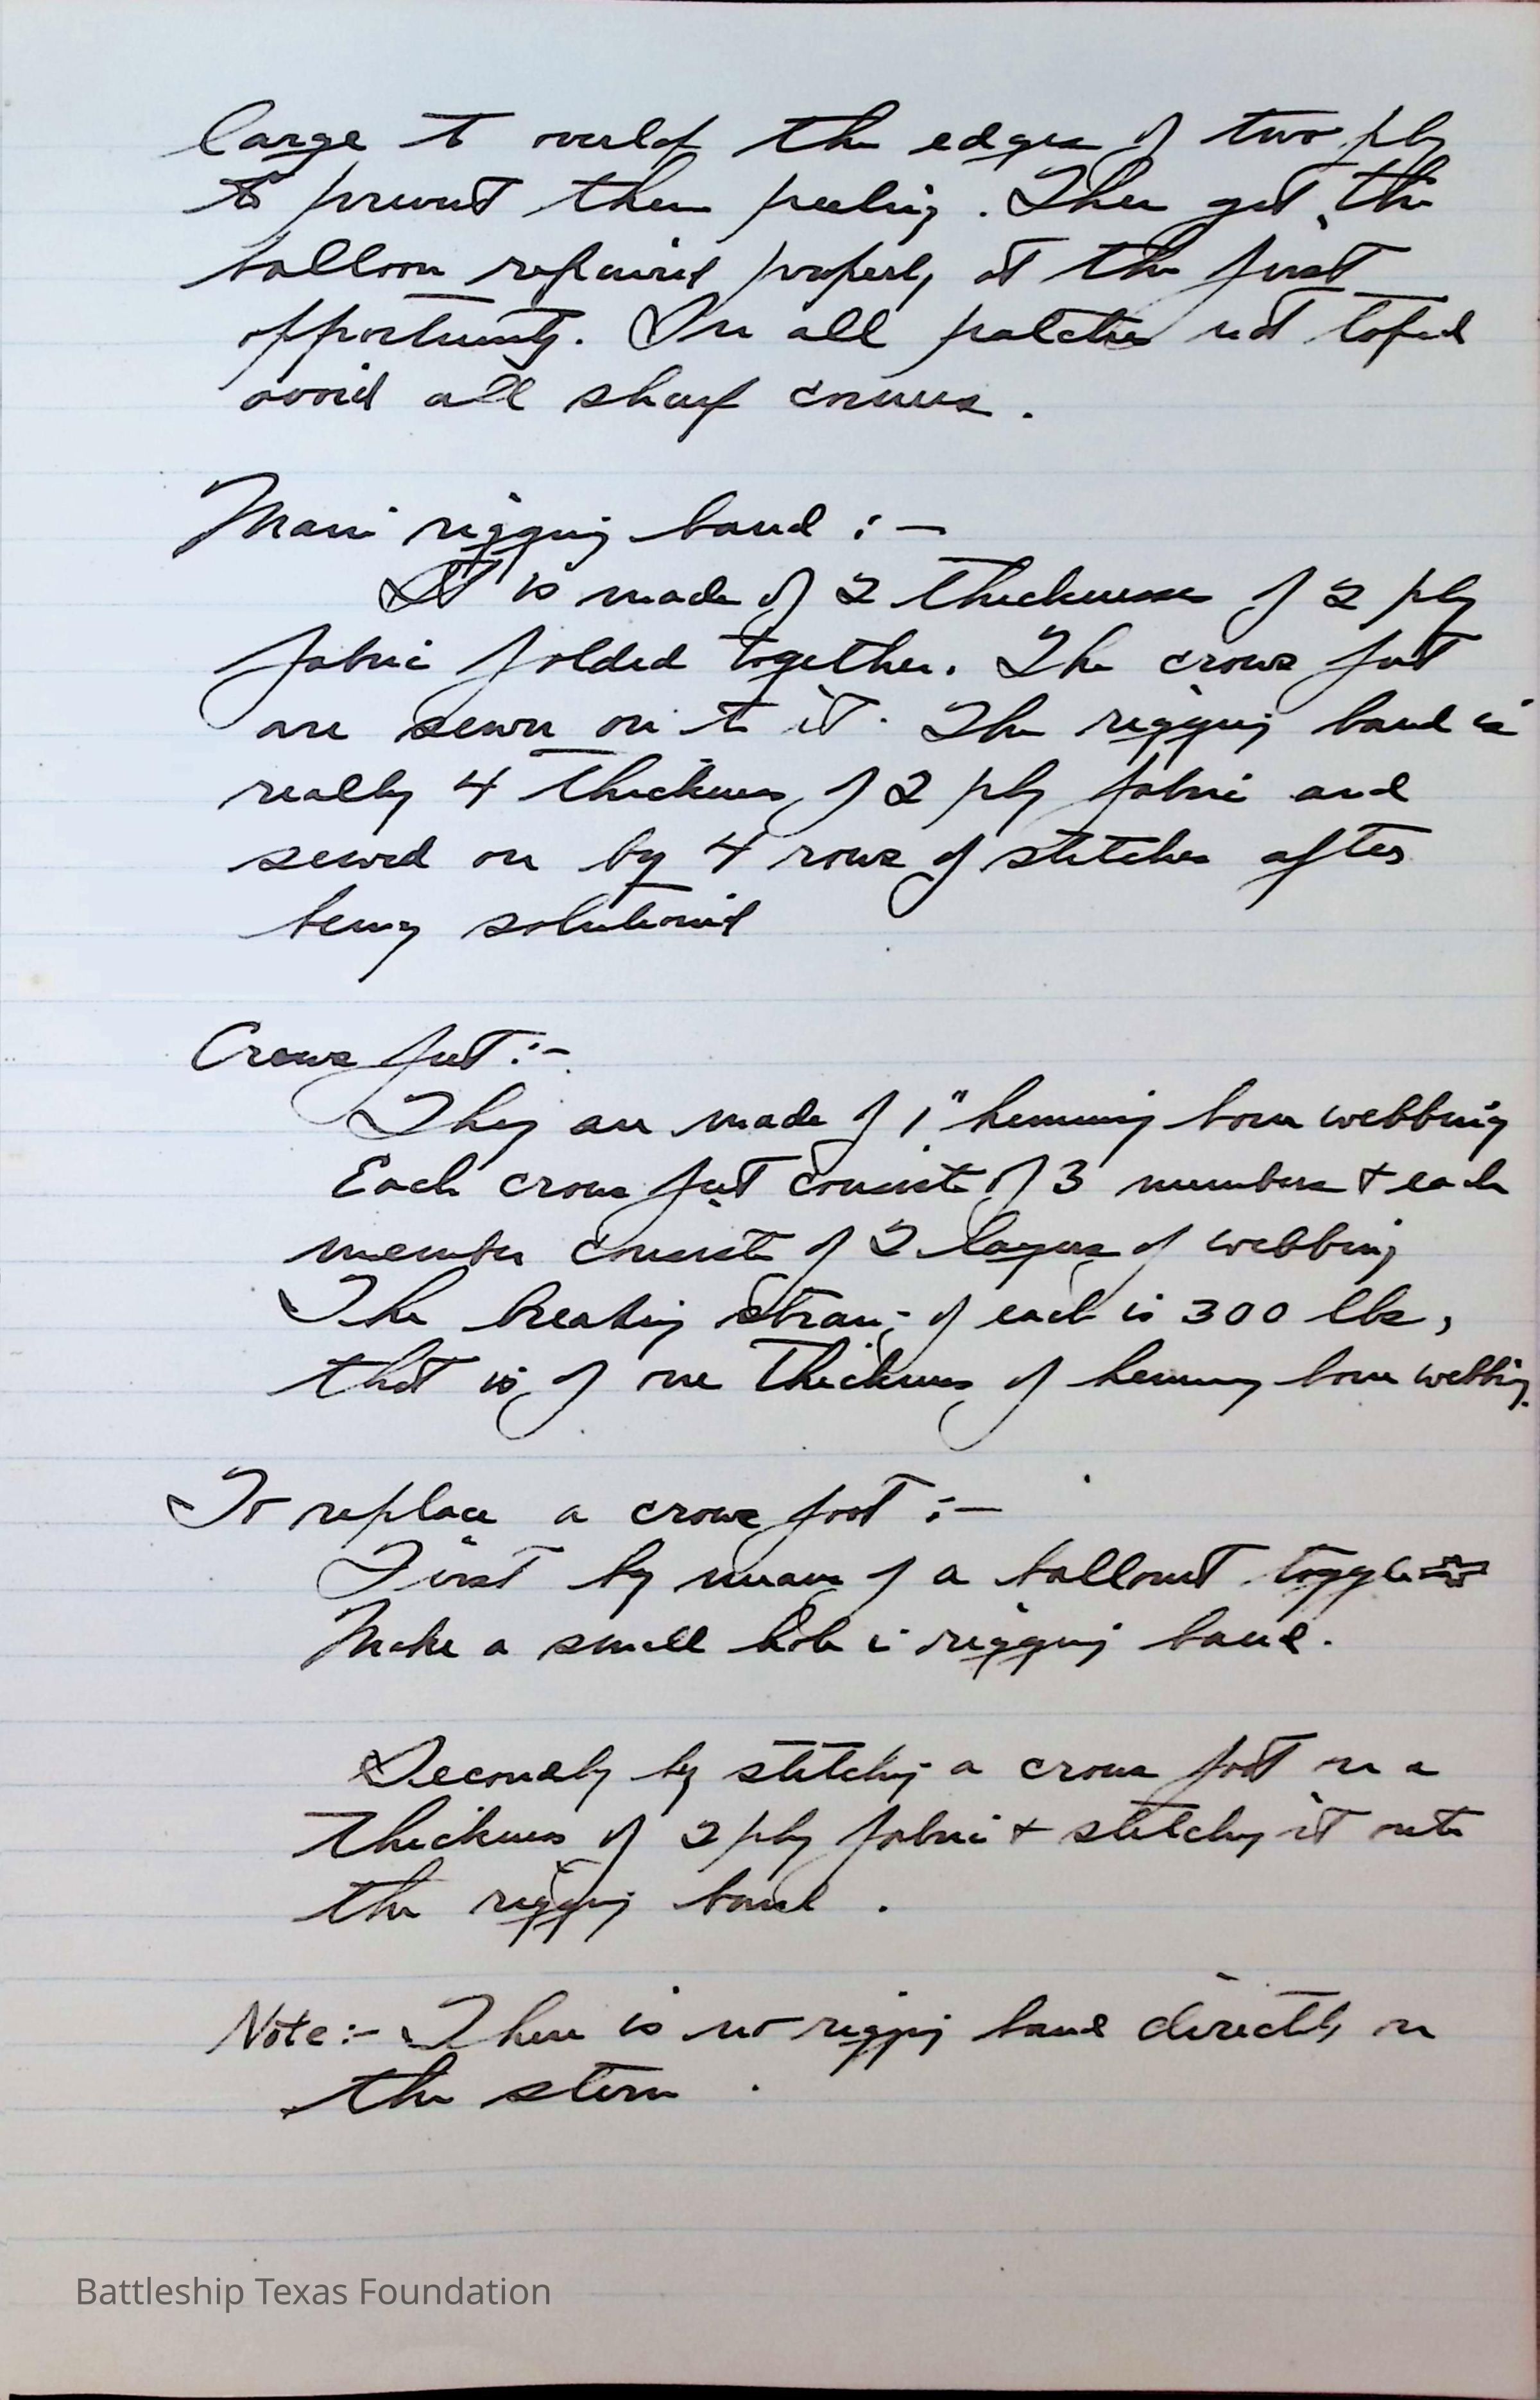 large to overlap the edges of two ply
to prevent them peeling. Then get the
balloon repaired properly at the first
opportunity. In all patches not taped
avoid all sharp corners.
Main rigging band :-
It is made of 2 thicknesses of 2 ply
fabric folded together. The crows feet
are sewn on to it. The rigging band is
really 4 thickness of 2 ply fabric and
sewed on by 4 rows of stitches after
being solutioned
Crows feet :-
They are made of 1" hemming bone webbing
Each crows feet consists of 3 members + each
member consists of 2 layers of webbing
The breaking strain of each is 300 lbs,
that is of one thickness of hemming bone webbing.
To replace a crows foot :-
First by means of a ballonet toggle
Make a small hole in rigging band.
Secondly by stitching a crows foot on a
thickness of 2 ply fabric + stitching it onto
the rigging band .
Note:- There is no rigging band directly on
the stern .
Battleship Texas Foundation